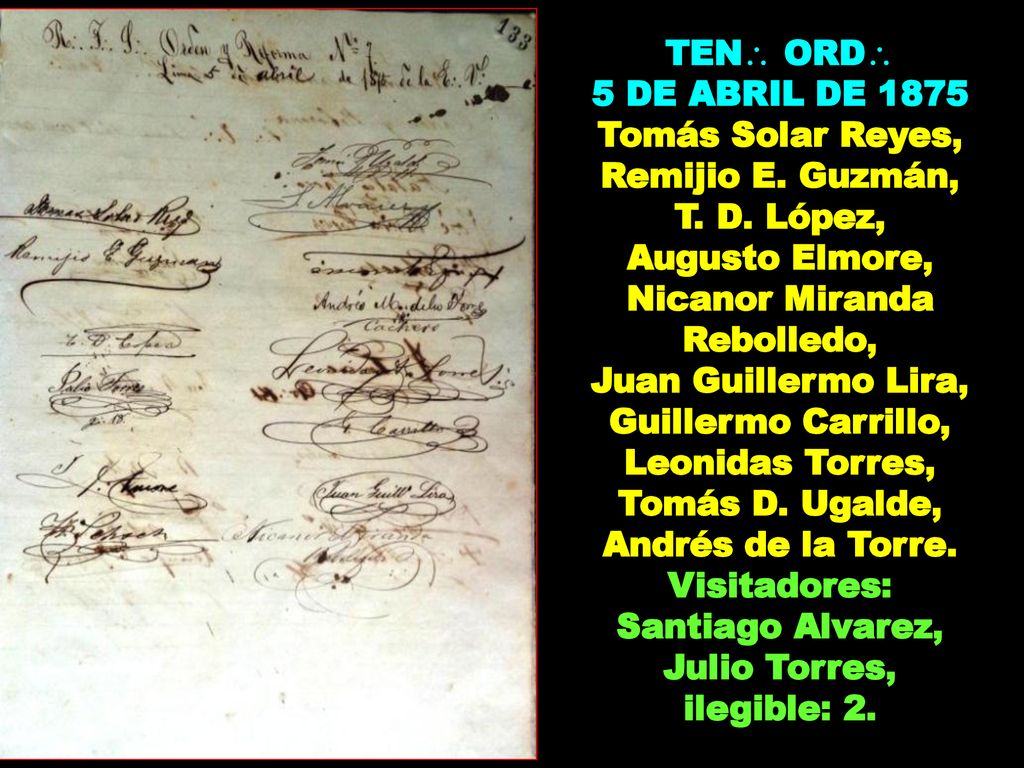 133
R∴ L∴ S∴ Orden y Reforma Nº 7
Lima 5 de abril de 1875 de la E∴ V∴
Tomás D. Ugalde
Tomas Solar Reyes
Remijio E. Guzman
Andrés M. de la Torre
T. D. López
Leonidas Torres
Julio Torres
G. Carrillo
Juan Guill. Lira
Nicanor Miranda
Rebolledo
TEN∴ ORD∴
5 DE ABRIL DE 1875
Tomás Solar Reyes,
Remijio E. Guzmán,
T. D. López,
Augusto Elmore,
Nicanor Miranda
Rebolledo,
Juan Guillermo Lira,
Guillermo Carrillo,
Leonidas Torres,
Tomás D. Ugalde,
Andrés de la Torre.
Visitadores:
Santiago Alvarez,
Julio Torres,
ilegible: 2.